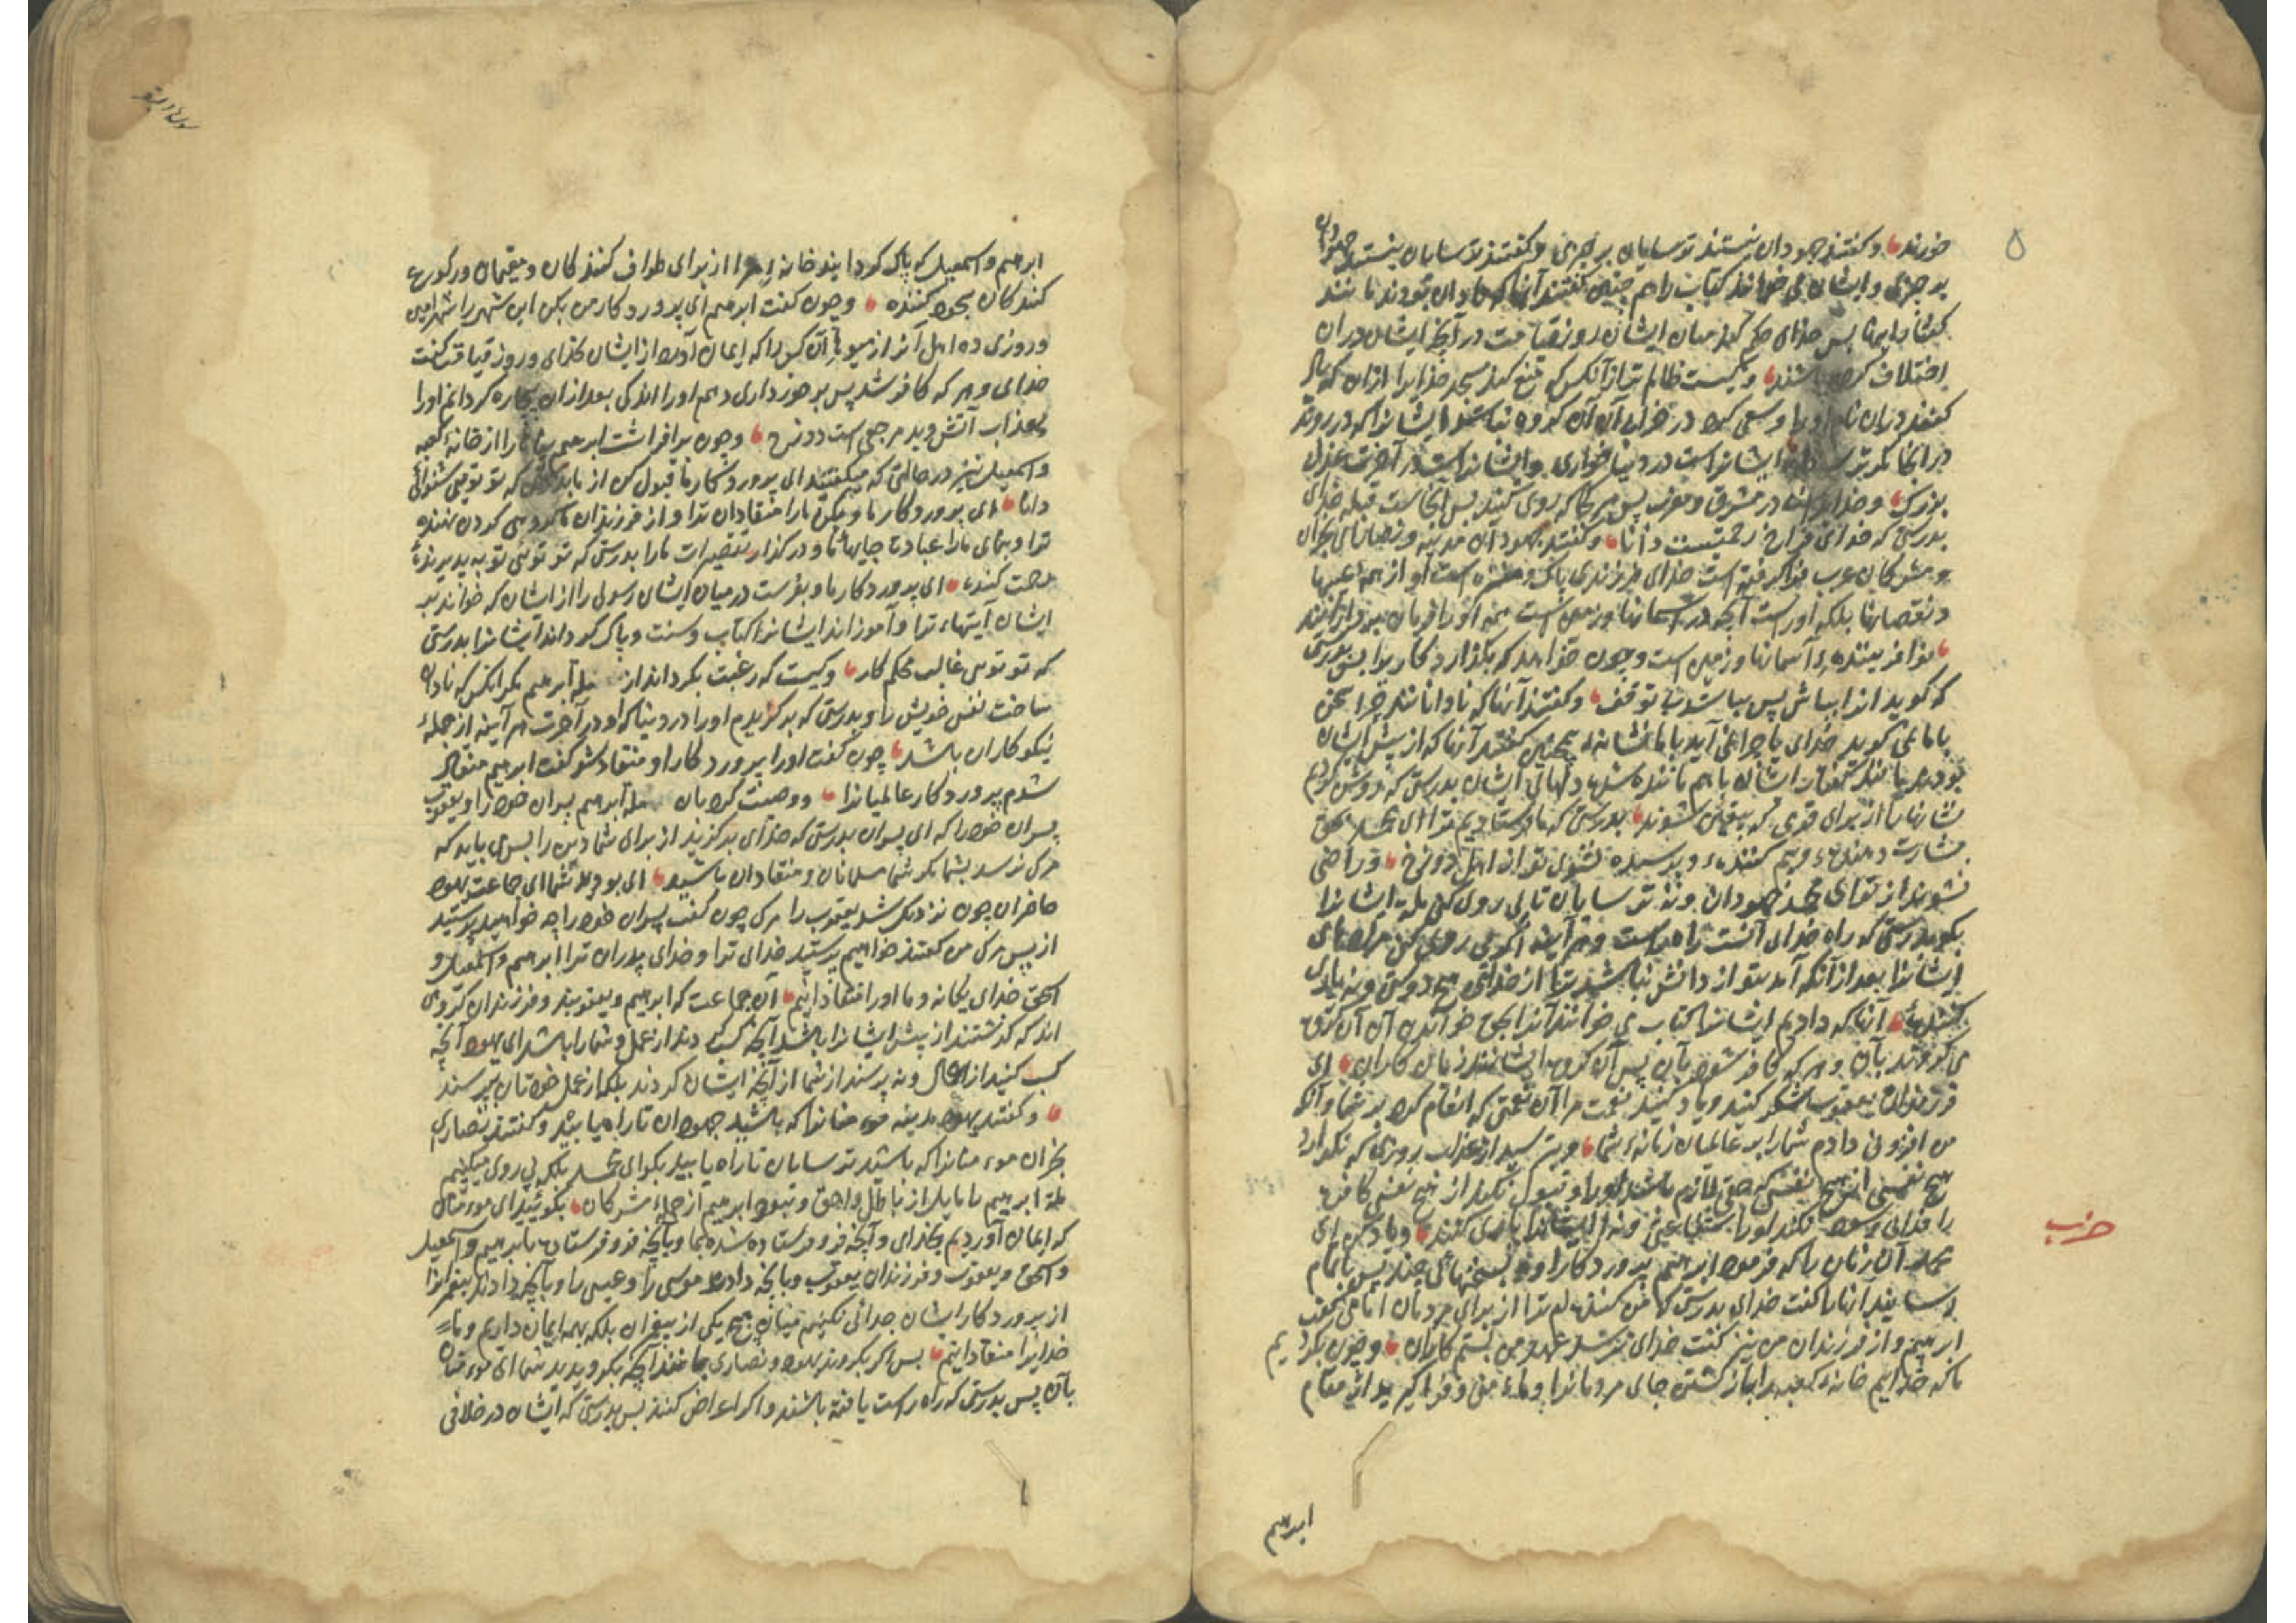 ۵
خورند و گفتند جهودان نیستند ترسایان بر چیزی و گفتند ترسایان نیستند جهودان
بر چیزی و ایشان می خوانند کتاب را هم چنین گفتند آنها که نادان بودند مانند
گفتار اینها پس خدای حکم کند میان ایشان روز قیامت در آنچه ایشان در آن
اختلاف کرده باشند و کیست ظالم تر از آنکس که منع کند مسجد خدایرا از آن که یاد
کنند در آن نام او را و سعی کرد در خرابی آن آن گروه نباشد ایشانرا که در روند
در آنجا مگر ترسان ایشانراست در دنیا خواری و ایشانراست در آخرت عذاب
بزرگ و خدایراست مشرق و مغرب پس هر کجا که روی کنید پس آنجاست قبله خدای
بدرستی که خدای فراخ رحمتست دانا و گفتند جهودان مدینه و نصارای نجران
و مشرکان عرب فرا گرفته است خدای فرزندی پاک و منزه است او از همه عیبها
و نقصانها بلکه اوراست آنچه در آسمانها و زمین است همه او را فرمان بردارانند
نو آفریننده آسمانها و زمین است و چون خواهد که بگذارد کاریرا پس بدرستی
که گوید انرا بباش پس بباشد بی توقف و گفتند آنها که نادانانند چرا سخن
با ما نمی گوید خدای یا چرا نمی آید بما نشانه همچنین گفتند آنها که از پیش ایشان
بودند مانند گفتار ایشان با هم ماننده شد دلهای ایشان بدرستی که روشن کردیم
نشانها را از برای قومی که بیقین شوند بدرستی که ما فرستادیم ترا ای محمد بحق
بشارت دهنده و بیم کننده و پرسیده نشوی تو از اهل دوزخ و راضی
نشوند از تو ای محمد جهودان و نه ترسایان تا پی روی کنی ملت ایشانرا
بگو بدرستی که راه خدای آنست راه راست و هر آینه اگر پی روی کنی مرادهای
ایشانرا بعد از آنکه آمد بتو از دانش نباشد ترا از خدای هیچ دوستی و نه یاری
کننده آنها که دادیم ایشانرا کتاب می خوانند آنرا بحق خواندن آن آن گروه
می گروند بآن و هر که کافر شود بآن پس آن گروه ایشانند زیان کاران ای
فرزندان یعقوب شکر کنید و یاد کنید نعمت مرا آن نعمتی که انعام کردم بر شما و آنکه
من افزونی دادم شما را بر عالمیان زمانه شما و بترسید از عذاب روزی که نگذارد
هیچ نفسی از هیچ نفسی که حق لازم باشد او را و قبول نکند از هیچ نفسی کافره
را فدائی و سود نکند او را شفاعتی و نه ایشانرا یاری کنند و یاد کن ای
حزب
محمد آن زمان را که فرمود ابرهیم را پروردگار او بسخنهائی چند پس تمام
رسانید آنها را گفت خدای بدرستی که من کننده ام ترا از برای مردمان امامی گفت
ابرهیم و از فرزندان من نیز گفت خدای نرسد عهد من بستم کاران و چون بکردیم
ما که خدائیم خانه کعبه را باز گشتن جای مردمانرا و جاء امن و فرا گیرید از مقام
ابرهیم
سورة البقر
ابرهیم و اسمعیل که پاک گردانید خانه مرا از برای طواف کنندکان و مقیمان و رکوع
کنندکان سجود کننده و چون گفت ابرهیم ای پروردکار من بکن این شهر را شهر امن
و روزی ده اهل آنرا از میوها آن کس را که ایمان آورد از ایشان بخدای و روز قیامت گفت
خدای و هر که کافر شد پس برخورداری دهم او را اندکی بعد از آن بیچاره گردانم او را
بعذاب آتش و بد مرجعی است دوزخ و چون برافراشت ابرهیم بناها را از خانه کعبه
و اسمعیل نیز در حالتی که میگفتند ای پروردکار ما قبول کن از ما بدرستی که تو توئی شنوائی
دانا ای پروردکار ما و بکن ما را منقادان ترا و از فرزندان ما گروهی گردن نهنده
ترا و بنمای ما را عبادت جایهاء ما و درگذار تقصیرات ما را بدرستی که تو توئی توبه پذیرنده
رحمت کننده ای پروردکار ما و بفرست در میان ایشان رسولی را از ایشان که خواند بر
ایشان آیتهاء ترا و آموزاند ایشانرا کتاب و سنت و پاک گرداند ایشانرا بدرستی
که تو توئی غالب محکم کار و کیست که رغبت بگرداند از ملة ابرهیم مگر انکس که نادان
ساخت نفس خویش را و بدرستی که برگزیدیم او را در دنیا و او در آخرت هر آینه از جملۀ
نیکوکاران باشد چون گفت او را پروردکار او منقاد شو گفت ابرهیم منقاد
شدم پروردکار عالمیانرا و وصیت کرد بآن ملة ابرهیم پسران خود را و یعقوب
پسران خود را که ای پسران بدرستی که خدای برگزید از برای شما دین را پس می باید که
مرگ نرسد بشما مگر شما مسلمانان و منقادان باشید ای بودید شما ای جماعت یهود
حاضران چون نزدیک شد یعقوب را مرگ چون گفت پسران خود را چه خواهید پرستید
از پس مرگ من گفتند خواهیم پرستید خدای ترا و خدای پدران ترا ابرهیم و اسمعیل و
اسحق خدای یگانه و ما او را منقادانیم آن جماعت که ابرهیم و یعقوبند و فرزندان گروهی
اند که گذشتند از پیش ایشانرا باشد آنچه کسب کردند از عمل و شما را باشد ای یهود آنچه
کسب کنید از اعمال و نه پرسند از شما از آنچه ایشان کردند بلکه از عمل خودتان بپرسند
و گفتند یهود مدینه مؤمنانرا که باشید جهودان تا راه یابید و گفتند نصاری
نجران مؤمنانرا که باشید ترسایان تا راه یابید بگو ای محمد بلکه پی روی میکنیم
ملة ابرهیم را مایل از باطل و احق و نبود ابرهیم از جملۀ مشرکان بگوئید ای مؤمنان
که ایمان آوردیم بخدای و آنچه فرو فرستاده شده بما و بآنچه فرو فرستاده بابرهیم و اسمعیل
و اسحق و یعقوب و فرزندان یعقوب و بآنچه دادند موسی را و عیسی را و بآنچه دادند پیغمبرانرا
از پروردکار ایشان جدائی نکنیم میان هیچ یکی از پیغمبران بلکه بهمه ایمان داریم و ما
خدایرا منقادانیم پس اگر بگروند یهود و نصاری مانند آنچه بگرویدید شما ای مؤمنان
بآن پس بدرستی که راه راست یافته باشند و اگر اعراض کنند پس بدرستی که ایشان در خلافی